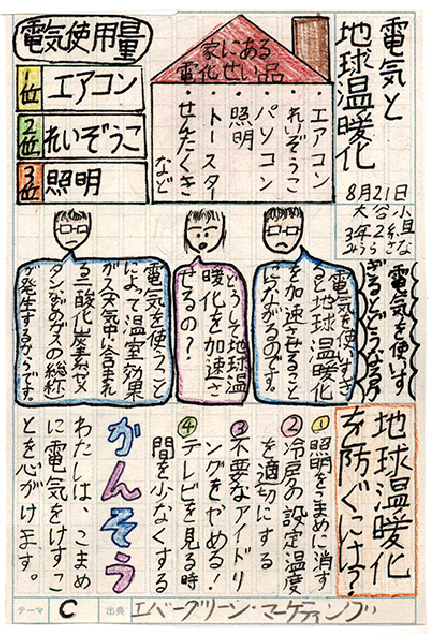 電気と
地球温暖化
8月21日
小見
谷
大
3年2くみ
家にある
電化せい品
・エアコン
・れいぞうこ
・パソコン
・照明
・トースター
・せんたくき
など
電気使用量
1位 エアコン
2位 れいぞうこ
3位 照明
電気を使いす
ぎるとどうなるの?
電気を使いすぎ
ると地球温暖化
を加速させること
につながるのです。
どうして地球温
暖化を加速さ
せるの?
電気を使うこと
によって温室効果
ガス(大気中に含まれ
る二酸化炭素やメ
タンなどのガスの総称)
が発生するからです。
地球温暖化
を防ぐには?
①照明をこまめに消す
②冷房の設定温度
を適切にする
③不要なアイドリ
ングをやめる!
④テレビを見る時
間を少なくする
かんそう
わたしは、こまめ
に電気をけすこ
とを心がけます。
テーマ C 出典 エバーグリーン・マーケティング